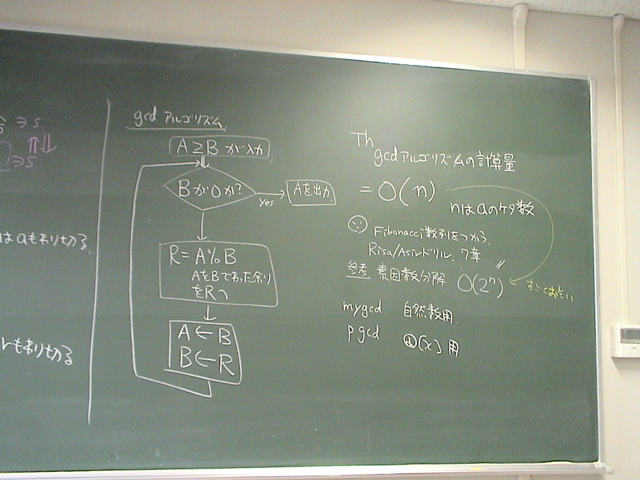 合 ⇒ 5
⇒ 5
は a もわり切る
r もわり切る
gcd アルゴリズム
A ≥ B が入力
B が 0 か?
yes
A を出力
R = A % B
A を B でわった余り
を R へ
A ← B
B ← R
Th
gcd アルゴリズムの計算量
= O(n)
n は a のケタ数
Fibonacci 数列をつかう.
Risa/Asir ドリル, 7章
参考 素因数分解 O(2ⁿ)
すごくおそい
mygcd 自然数用
pgcd Q[x] 用